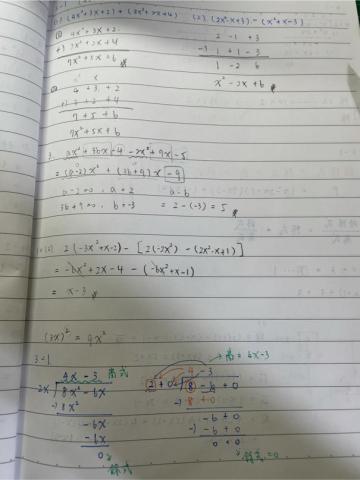 (1). (4x²+3x+2) + (3x²+2x+4) (2). (2x²-x+3) - (x²+x-3)
4x²+3x+2
+) 3x²+2x+4
7x²+5x+6
2 -1 +3
-) 1 +1 -3
1 -2 6
x²-2x+6
4 +3 +2
+) 3 +2 +4
7 +5 +6
7x²+5x+6
3. ax²+3bx-4-2x²+9x-5
= (a-2)x² + (3b+9)x -9
a-2=0, a=2
3b+9=0, b=-3
a-b
= 2-(-3) = 5
2(-3x²+x-2) - [2(-2x²) - (2x²-x+1)]
= -6x²+2x-4 - (-6x²+x-1)
= x-3
(3x)² = 9x²
3-1
4x-3 商式
2x 8x²-6x
-) 8x²
-6x
-6x
0
餘式
商=4x-3
4 -3
2+0 8 -6 +0
-) 8+0
-6+0
-) -6+0
0+0
餘式=0